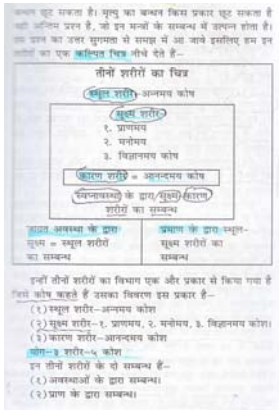 बन्धन छूट सकता है। मृत्यु का बन्धन किस प्रकार छूट सकता है
यही अन्तिम प्रश्न है, जो इन मन्त्रों के सम्बन्ध में उत्पन्न होता है।
इस प्रश्न का उत्तर सुगमता से समझ में आ जावे इसलिए हम इन
शरीरों का एक कल्पित चित्र नीचे देते हैं–
तीनों शरीरों का चित्र
स्थूल शरीर-अन्नमय कोष
सूक्ष्म शरीर-
१. प्राणमय
२. मनोमय
३. विज्ञानमय कोष
कारण शरीर = आनन्दमय कोष
स्वप्नावस्था के द्वारा सूक्ष्म कारण
शरीरों का सम्बन्ध
जाग्रत अवस्था के द्वारा
सूक्ष्म = स्थूल शरीरों
का सम्बन्ध
प्रमाण के द्वारा स्थूल-
सूक्ष्म शरीरों का
सम्बन्ध
इन्हीं तीनों शरीरों का विभाग एक और प्रकार से किया गया है
जिसे कोष कहते हैं उसका विवरण इस प्रकार है–
(१) स्थूल शरीर-अन्नमय कोष
(२) सूक्ष्म शरीर-१. प्राणमय, २. मनोमय, ३. विज्ञानमय कोष।
(३) कारण शरीर-आनन्दमय कोष
योग-३ शरीर-५ कोष
इन तीनों शरीरों के दो सम्बन्ध हैं–
(१) अवस्थाओं के द्वारा सम्बन्ध।
(२) प्राण के द्वारा सम्बन्ध।